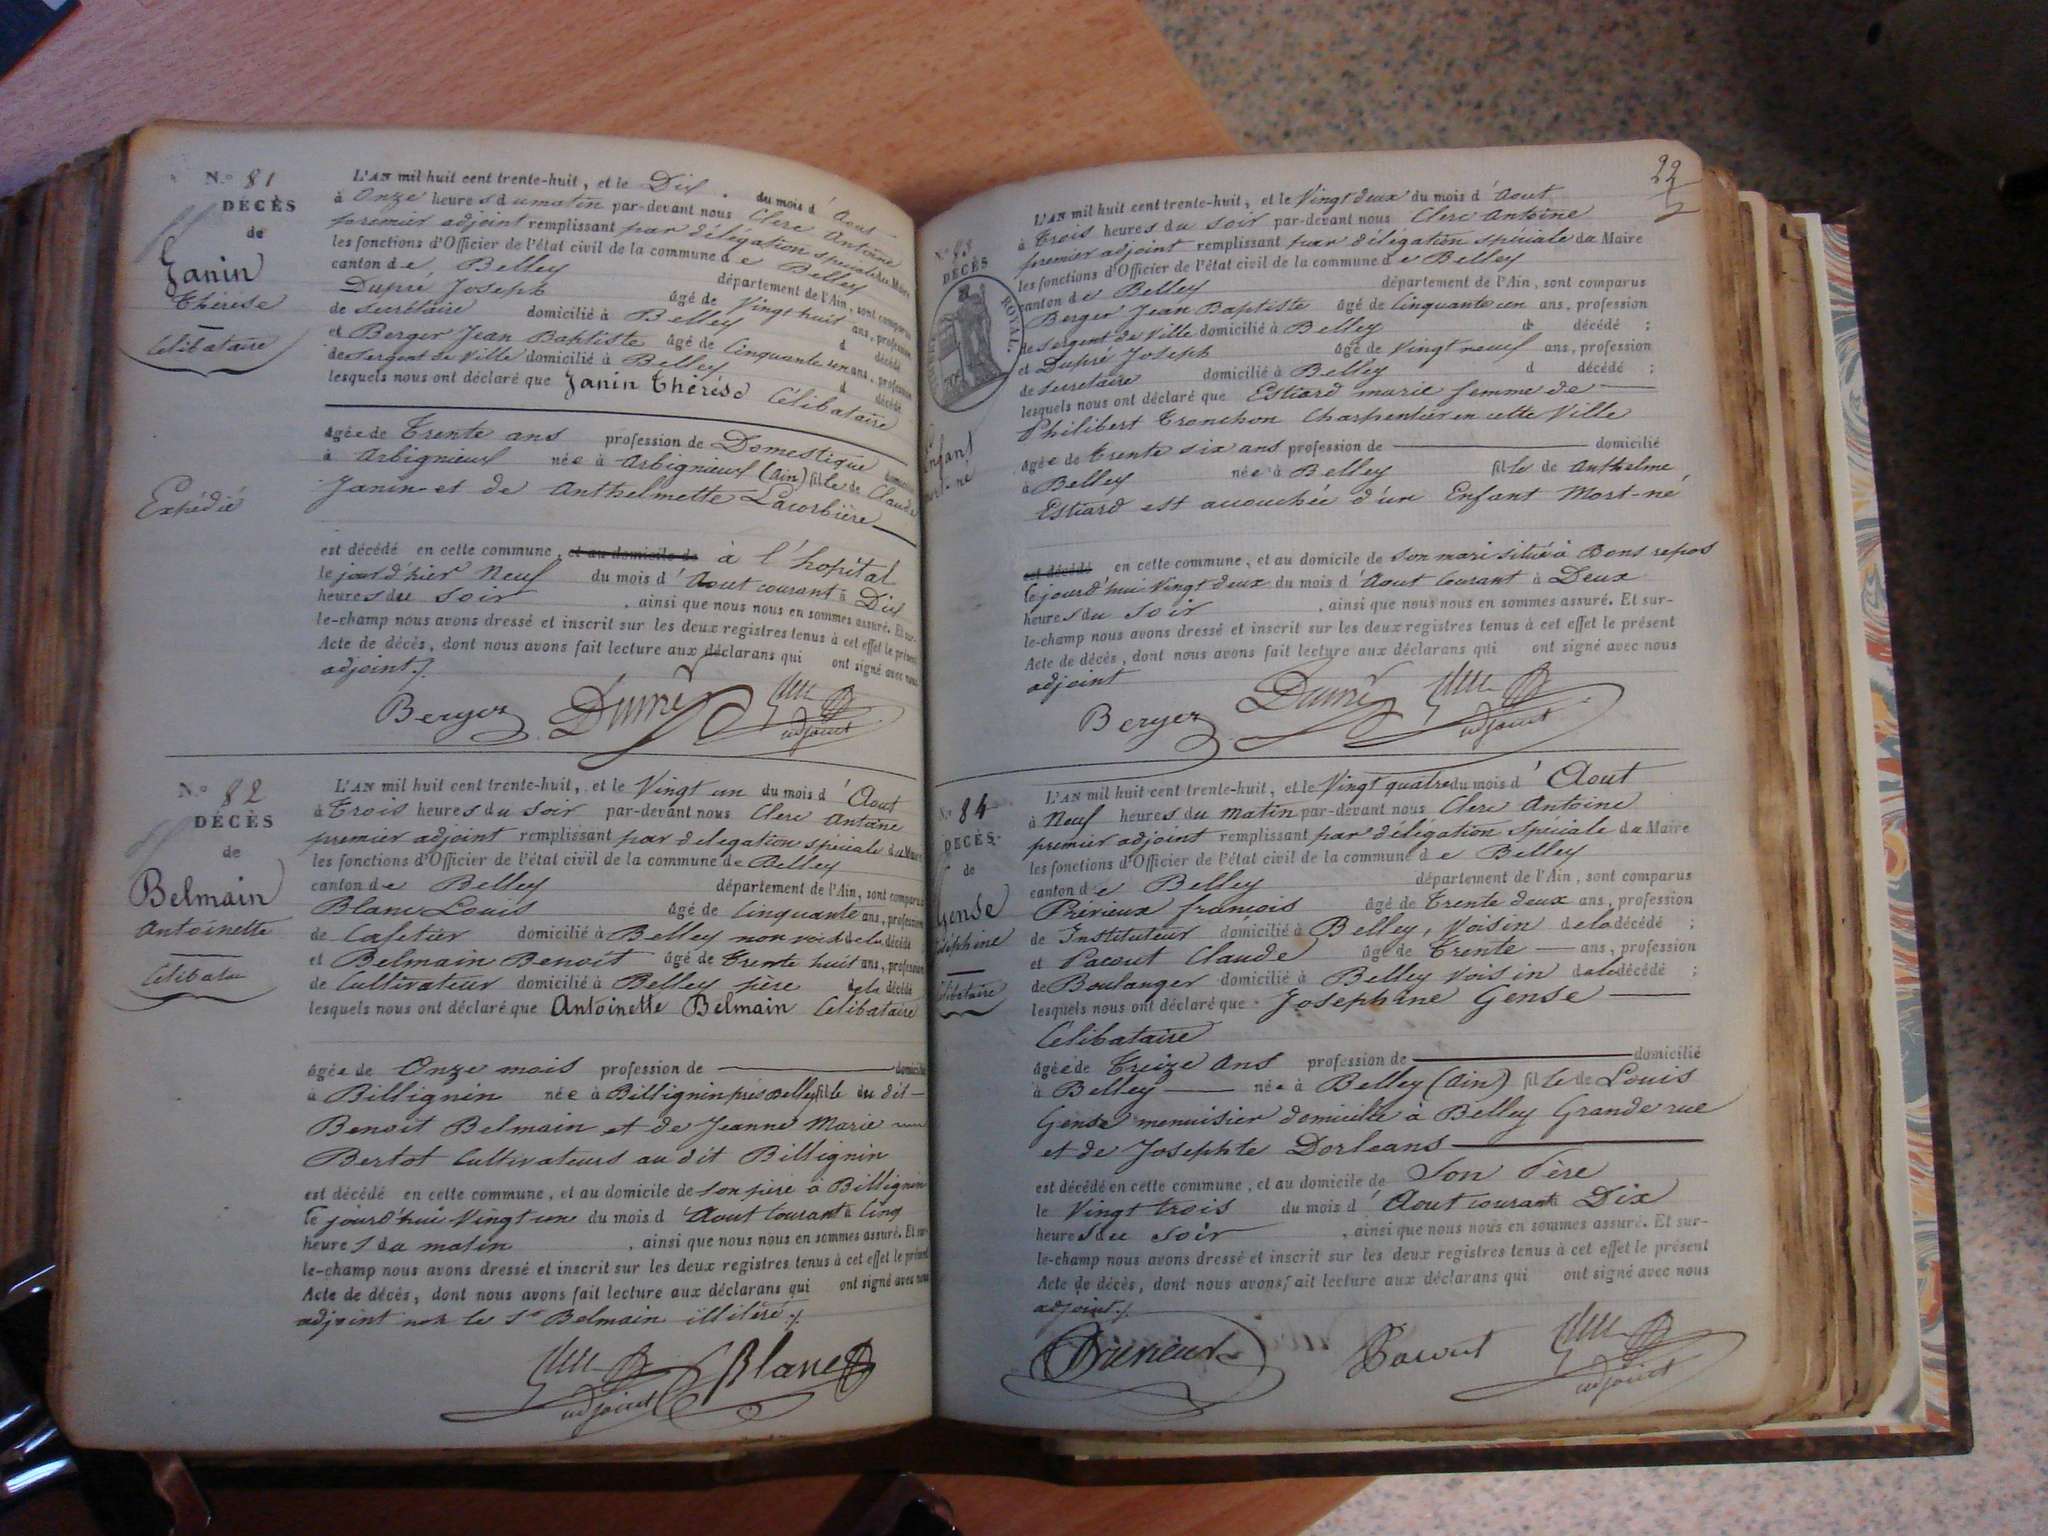 N.o 81
DÉCÈS
de
Janin
Thérèse
Célibataire
Expédié
L'AN mil huit cent trente-huit, et le Dix du mois d'Aout
à Onze heures du matin par-devant nous Clerc Antoine
premier adjoint remplissant par délégation spéciale du Maire
les fonctions d'Officier de l'état civil de la commune de Belley
canton de Belley département de l'Ain, sont comparus
Dupré Joseph âgé de Vingt huit ans, profession
de secrétaire domicilié à Belley d décédé
et Berger Jean Baptiste âgé de Cinquante un ans, profession
de sergent de Ville domicilié à Belley d décédé
lesquels nous ont déclaré que Janin Thérèse Célibataire
âgée de Trente ans profession de Domestique domicilié
à Arbignieux née à Arbignieux (Ain) fille de Claude
Janin et de Anthelmette Lacorbière
est décédé en cette commune, et au domicile de à l'hopital
le jourd'hier Neuf du mois d'Aout courant à Dix
heures du soir, ainsi que nous nous en sommes assuré. Et sur-
le-champ nous avons dressé et inscrit sur les deux registres tenus à cet effet le présent
Acte de décès, dont nous avons fait lecture aux déclarans qui ont signé avec nous
adjoint ./.
Berger Dupré adjoint
N.o 82
DÉCÈS
de
Belmain
Antoinette
L'AN mil huit cent trente-huit, et le Vingt un du mois d'Aout
à Trois heures du soir par-devant nous Clerc Antoine
premier adjoint remplissant par delegation spéciale du Maire
les fonctions d'Officier de l'état civil de la commune de Belley
canton de Belley département de l'Ain, sont comparus
Blanc Louis âgé de Cinquante ans, profession
de Cafetier domicilié à Belley non voisin de la décédé
et Belmain Benoit âgé de Trente huit ans, profession
de Cultivateur domicilié à Belley père de la décédé
lesquels nous ont déclaré que Antoinette Belmain Célibataire
âgée de Onze mois profession de domicilié
à Billignin née à Billignin près Belley fille du dit
Benoit Belmain et de Jeanne Marie
Bertot Cultivateurs au dit Billignin
est décédé en cette commune, et au domicile de son père à Billignin
le jourd'hui Vingt un du mois d'Aout Courant à Cinq
heures du matin, ainsi que nous nous en sommes assuré. Et sur-
le-champ nous avons dressé et inscrit sur les deux registres tenus à cet effet le présent
Acte de décès, dont nous avons fait lecture aux déclarans qui ont signé avec nous
adjoint non le Sr Belmain illitéré ./.
adjoint Blanc
22
N.o 83
DÉCÈS
ROYAL.
Enfant
mort-né
L'AN mil huit cent trente-huit, et le Vingt deux du mois d'Aout
à Trois heures du soir par-devant nous Clerc Antoine
premier adjoint remplissant par délégation spéciale du Maire
les fonctions d'Officier de l'état civil de la commune de Belley
canton de Belley département de l'Ain, sont comparus
Berger Jean Baptiste âgé de Cinquante un ans, profession
de sergent de Ville domicilié à Belley d décédé ;
et Dupré Joseph âgé de Vingt neuf ans, profession
de secretaire domicilié à Belley d décédé ;
lesquels nous ont déclaré que Estiard marie femme de
Philibert Tronchon Charpentier en cette Ville
âgée de Trente six ans profession de domicilié
à Belley née à Belley fille de Anthelme
Estiard est accouchée d'un Enfant Mort-né
est décédé en cette commune, et au domicile de son mari situé à Bons repos
le jourd'hui Vingt deux du mois d'Aout Courant à Deux
heures du soir, ainsi que nous nous en sommes assuré. Et sur-
le-champ nous avons dressé et inscrit sur les deux registres tenus à cet effet le présent
Acte de décès, dont nous avons fait lecture aux déclarans qui ont signé avec nous
adjoint
Berger Dupré adjoint
N.o 84
DÉCÈS
de
Gense
Joséphine
Célibataire
L'AN mil huit cent trente-huit, et le Vingt quatre du mois d'Aout
à Neuf heures du matin par-devant nous Clerc Antoine
premier adjoint remplissant par délégation spéciale du Maire
les fonctions d'Officier de l'état civil de la commune de Belley
canton de Belley département de l'Ain, sont comparus
Prévieux françois âgé de Trente deux ans, profession
de Instituteur domicilié à Belley, Voisin de la décédé ;
et Pacout Claude âgé de Trente ans, profession
de Boulanger domicilié à Belley Voisin de la décédé ;
lesquels nous ont déclaré que Josephine Gense
Célibataire
âgée de Treize Ans profession de domicilié
à Belley née à Belley (Ain) fille de Louis
Gense menuisier domicilié à Belley Grande rue
et de Josephte Dorleans
est décédé en cette commune, et au domicile de Son Père
le Vingt trois du mois d'Aout courant à Dix
heures du soir, ainsi que nous nous en sommes assuré. Et sur-
le-champ nous avons dressé et inscrit sur les deux registres tenus à cet effet le présent
Acte de décès, dont nous avons fait lecture aux déclarans qui ont signé avec nous
adjoint ./.
Prévieux Pacout adjoint